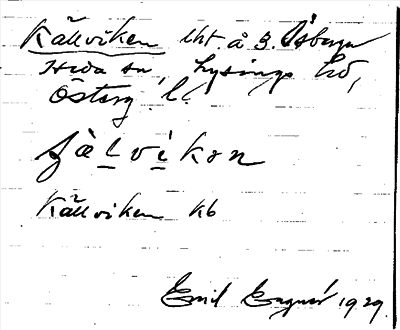 Källviken lht. å S. Åsberga
Heda sn, Lysings hd,
Österg. l.
ʃὰlvìkɔn
Källviken kb
Emil 1929